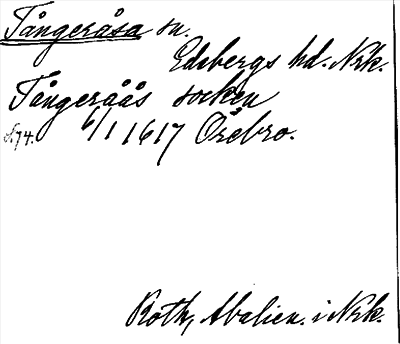 Tångeråsa sn.
Edsbergs hd. Nrk.
Tångeråås socken
s. 74. 6/1 1617 Örebro.
Roth, Abalien. i Nrk.